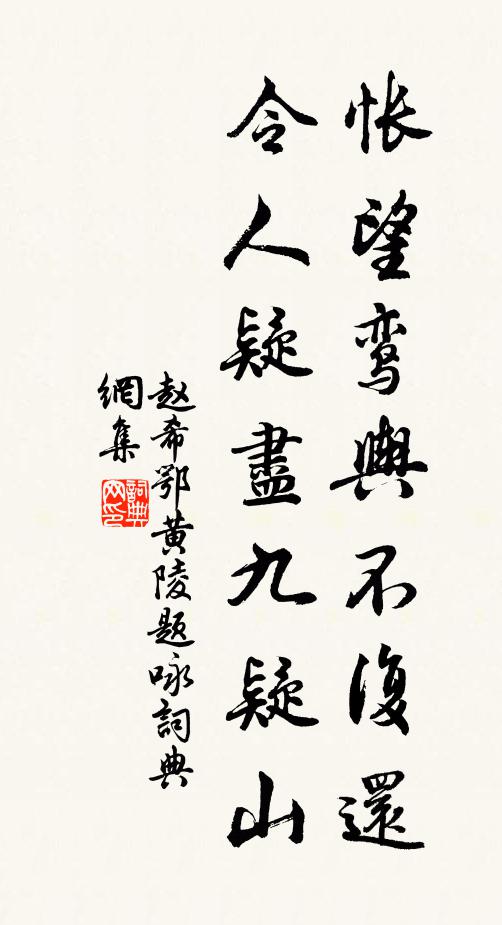 怅望鸾輿不復還
令人疑盡九疑山
赵希鄂黄陵题咏詞典
網集
詞典
网印